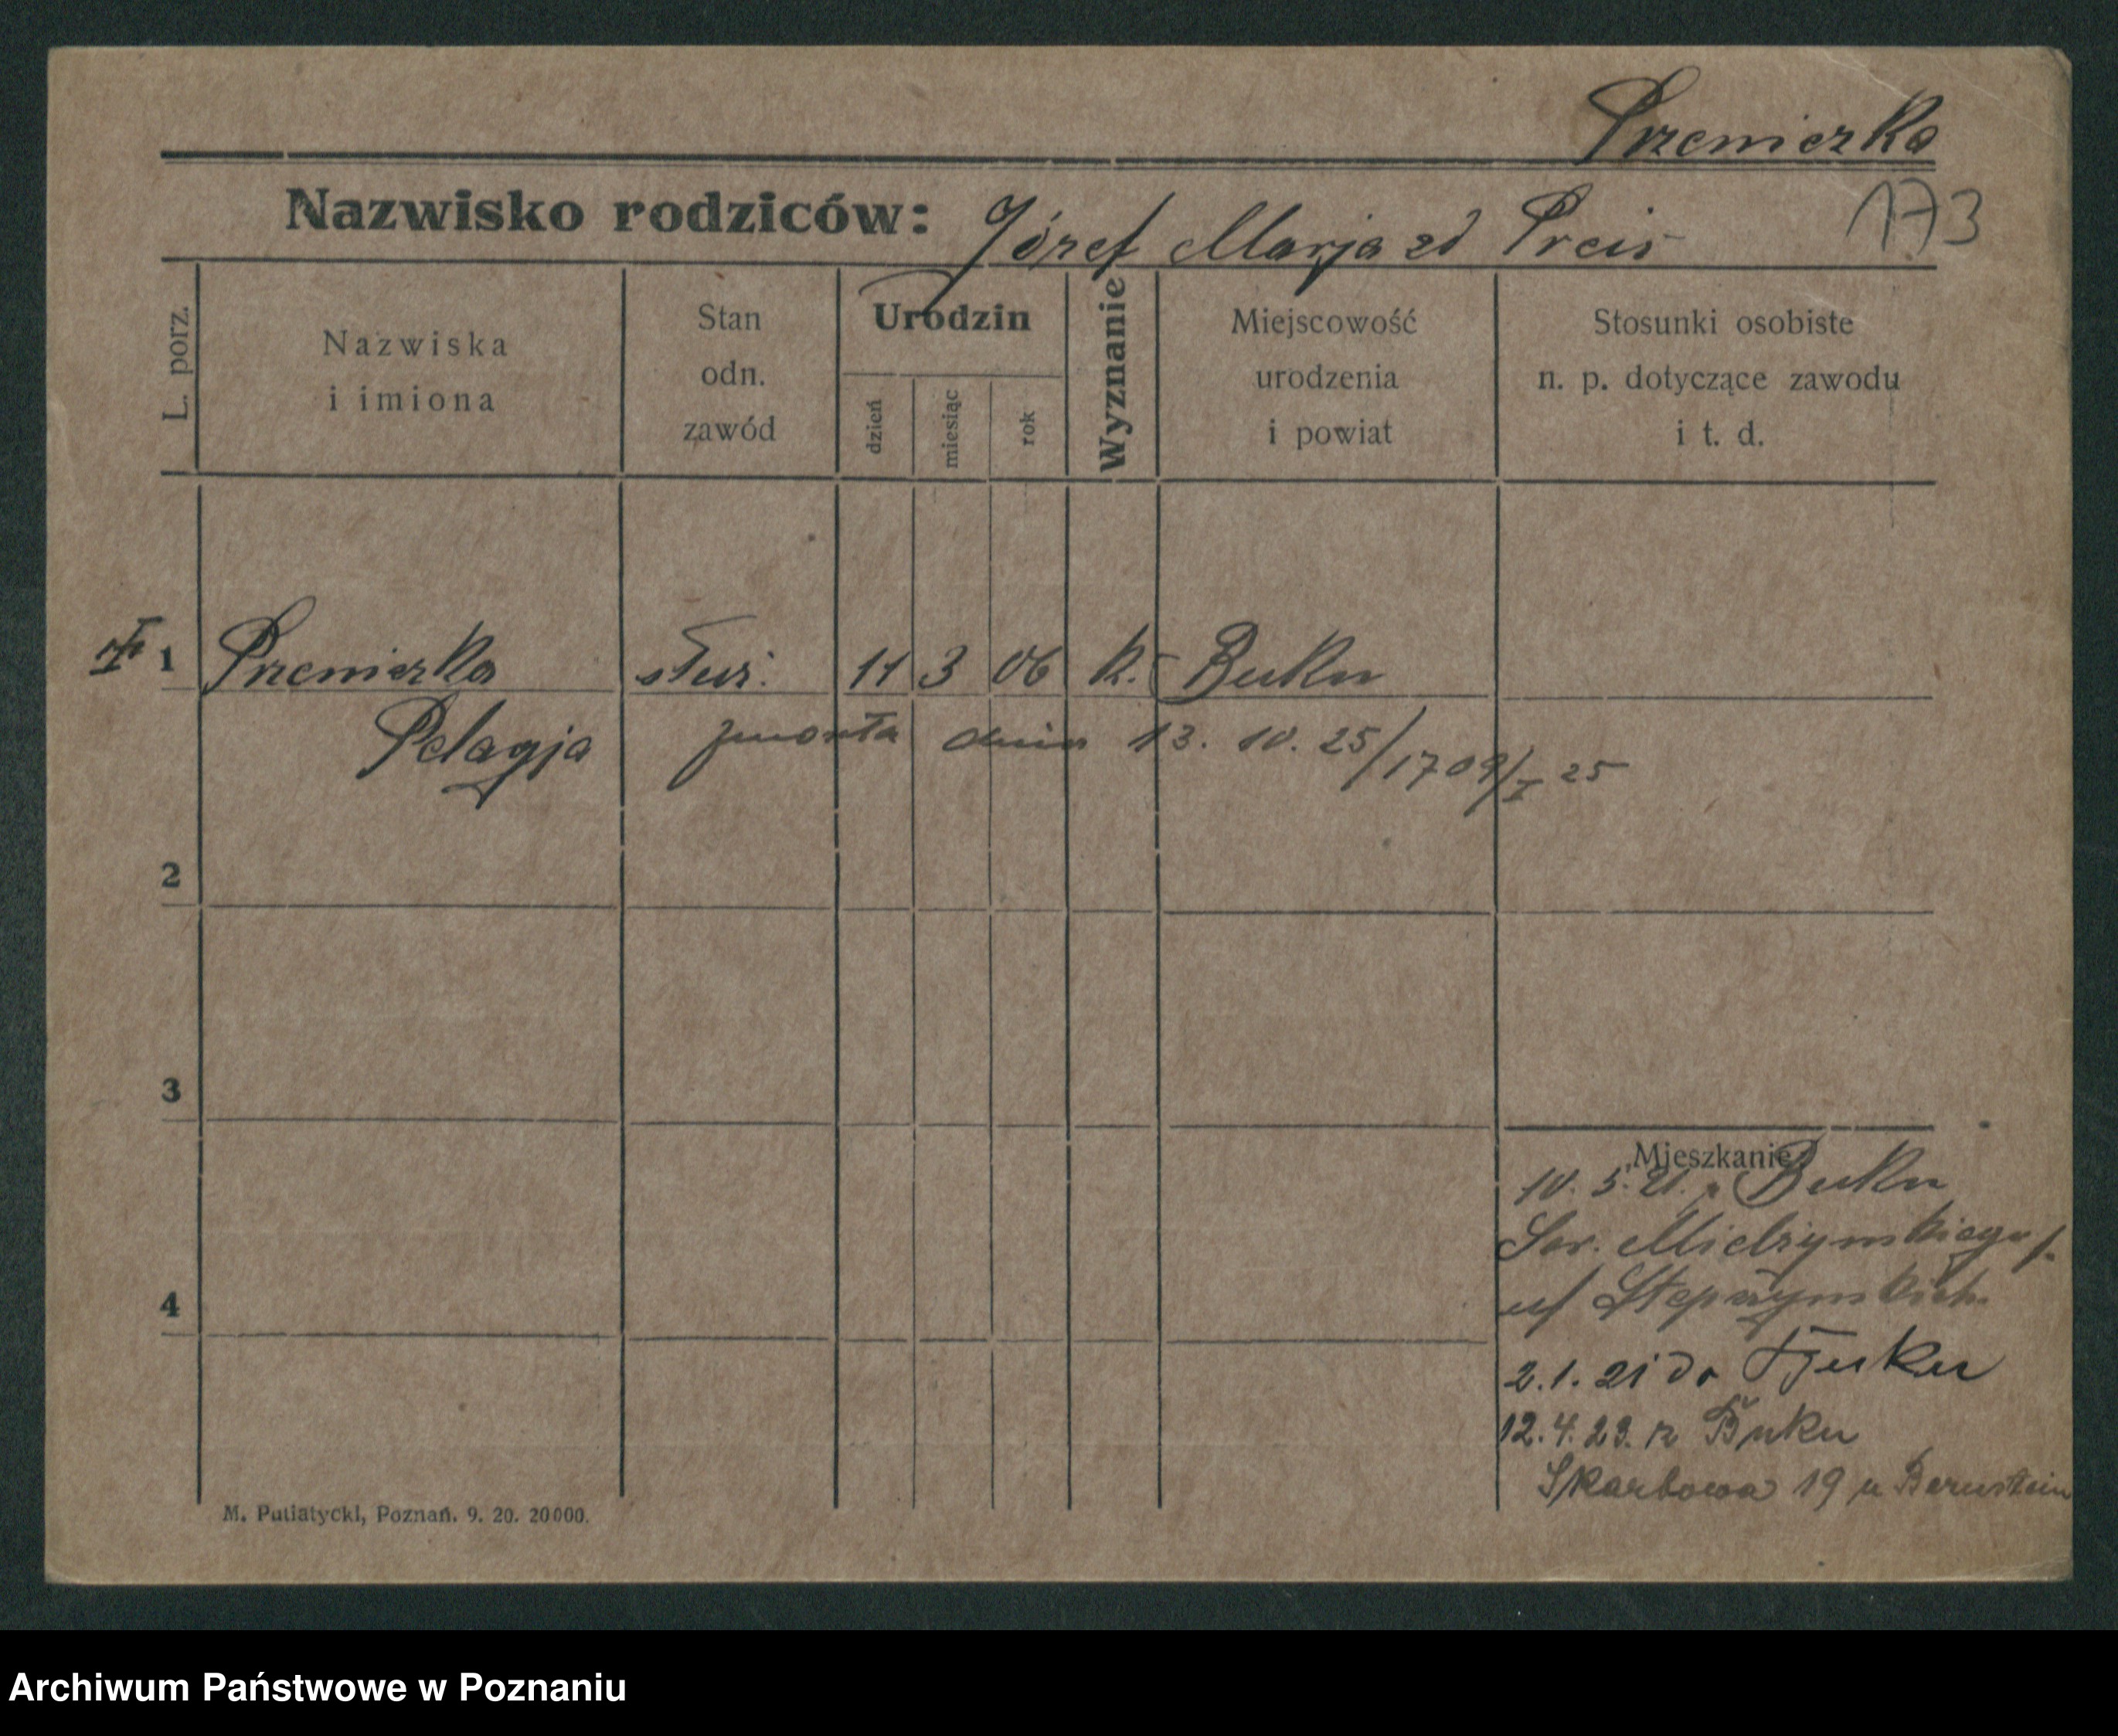 Przeniczka
Nazwisko rodziców: Józef Marja zd Preis
173
L. porz.
Nazwiska
i imiona
Stan
odn.
zawód
Urodzin
dzień
miesiąc
rok
Wyznanie
Miejscowość
urodzenia
i powiat
Stosunki osobiste
n. p. dotyczące zawodu
i t. d.
1 Przeniczka służ. 11 3 06 k. Buku
Pelagja zmarła dnia 13. 10. 25/1709/I 25
2
3
4
Mieszkanie:
10. 5. 21. z Buku
Sew. Mielżyńskiego
u/ Stepczyńskich
2. 1. 21 do Buku
12. 4. 23. z Buku
Skarbowa 19 u Bernstein
M. Putiatycki, Poznań. 9. 20. 20000.
Archiwum Państwowe w Poznaniu